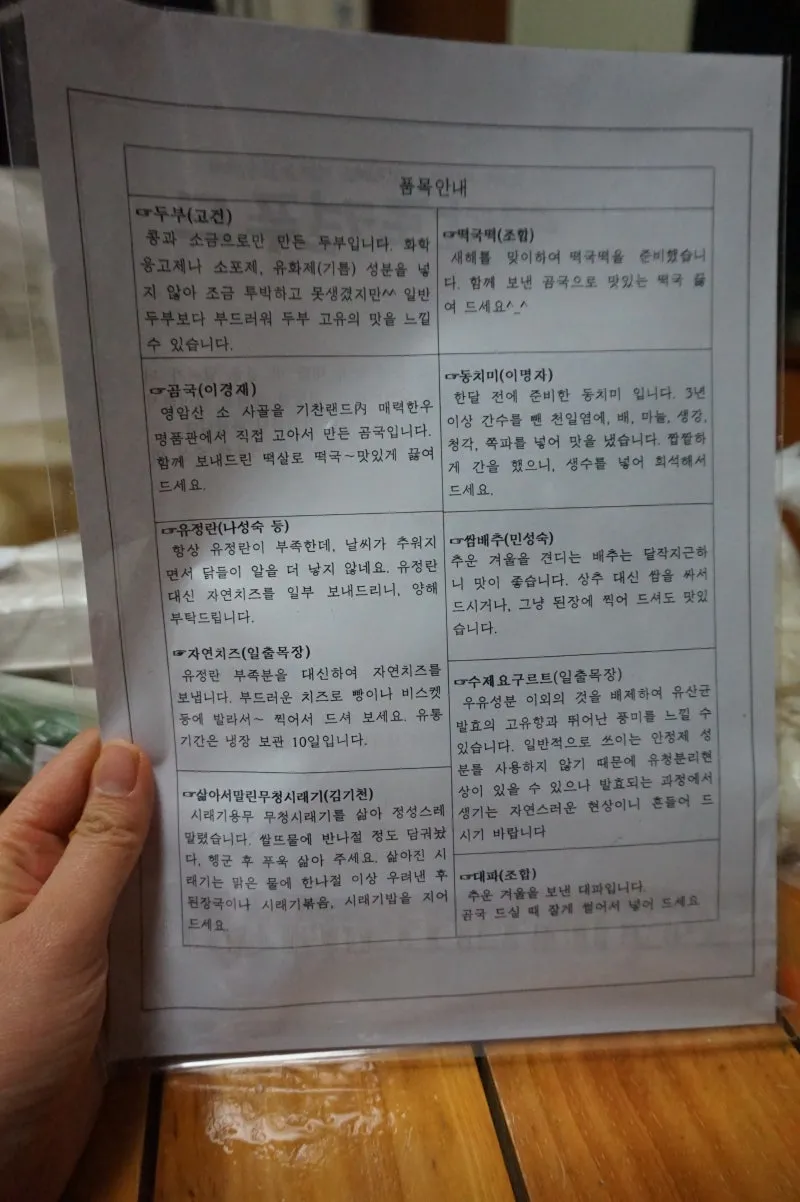 품목안내
☞두부(고건)
콩과 소금으로만 만든 두부입니다. 화학
응고제나 소포제, 유화제(기름) 성분을 넣
지 않아 조금 투박하고 못생겼지만^^ 일반
두부보다 부드러워 두부 고유의 맛을 느낄
수 있습니다.
☞곰국(이경재)
영암산 소 사골을 기찬랜드內 매력한우
명품관에서 직접 고아서 만든 곰국입니다.
함께 보내드린 떡살로 떡국~맛있게 끓여
드세요.
☞유정란(나성숙 등)
항상 유정란이 부족한데, 날씨가 추워지
면서 닭들이 알을 더 낳지 않네요. 유정란
대신 자연치즈를 일부 보내드리니, 양해
부탁드립니다.
☞자연치즈(일출목장)
유정란 부족분을 대신하여 자연치즈를
보냅니다. 부드러운 치즈로 빵이나 비스켓
등에 발라서~ 찍어서 드셔 보세요. 유통
기간은 냉장 보관 10일입니다.
☞삶아서말린무청시래기(김기천)
시래기용무 무청시래기를 삶아 정성스레
말렸습니다. 쌀뜨물에 반나절 정도 담궈놨
다, 헹군 후 푸욱 삶아 주세요. 삶아진 시
래기는 맑은 물에 한나절 이상 우려낸 후
된장국이나 시래기볶음, 시래기밥을 지어
드세요.
☞떡국떡(조합)
새해를 맞이하여 떡국떡을 준비했습니
다. 함께 보낸 곰국으로 맛있는 떡국 끓
여 드세요^_^
☞동치미(이명자)
한달 전에 준비한 동치미 입니다. 3년
이상 간수를 뺀 천일염에, 배, 마늘, 생강,
청각, 쪽파를 넣어 맛을 냈습니다. 짭짤하
게 간을 했으니, 생수를 넣어 희석해서
드세요.
☞쌈배추(민성숙)
추운 겨울을 견디는 배추는 달작지근하
니 맛이 좋습니다. 상추 대신 쌈을 싸서
드시거나, 그냥 된장에 찍어 드셔도 맛있
습니다.
☞수제요구르트(일출목장)
우유성분 이외의 것을 배제하여 유산균
발효의 고유향과 뛰어난 풍미를 느낄 수
있습니다. 일반적으로 쓰이는 안정제 성
분를 사용하지 않기 때문에 유청분리현
상이 있을 수 있으나 발효되는 과정에서
생기는 자연스러운 현상이니 흔들어 드
시기 바랍니다
☞대파(조합)
추운 겨울을 보낸 대파입니다.
곰국 드실 때 잘게 썰어서 넣어 드세요